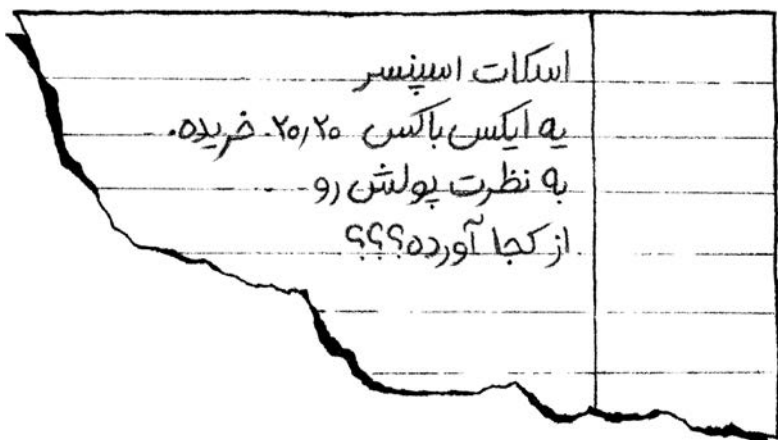 اسکات اسپنسر
یه ایکس باکس ۲۰٫۲۰ خریده.
به نظرت پولش رو
از کجا آورده؟؟؟